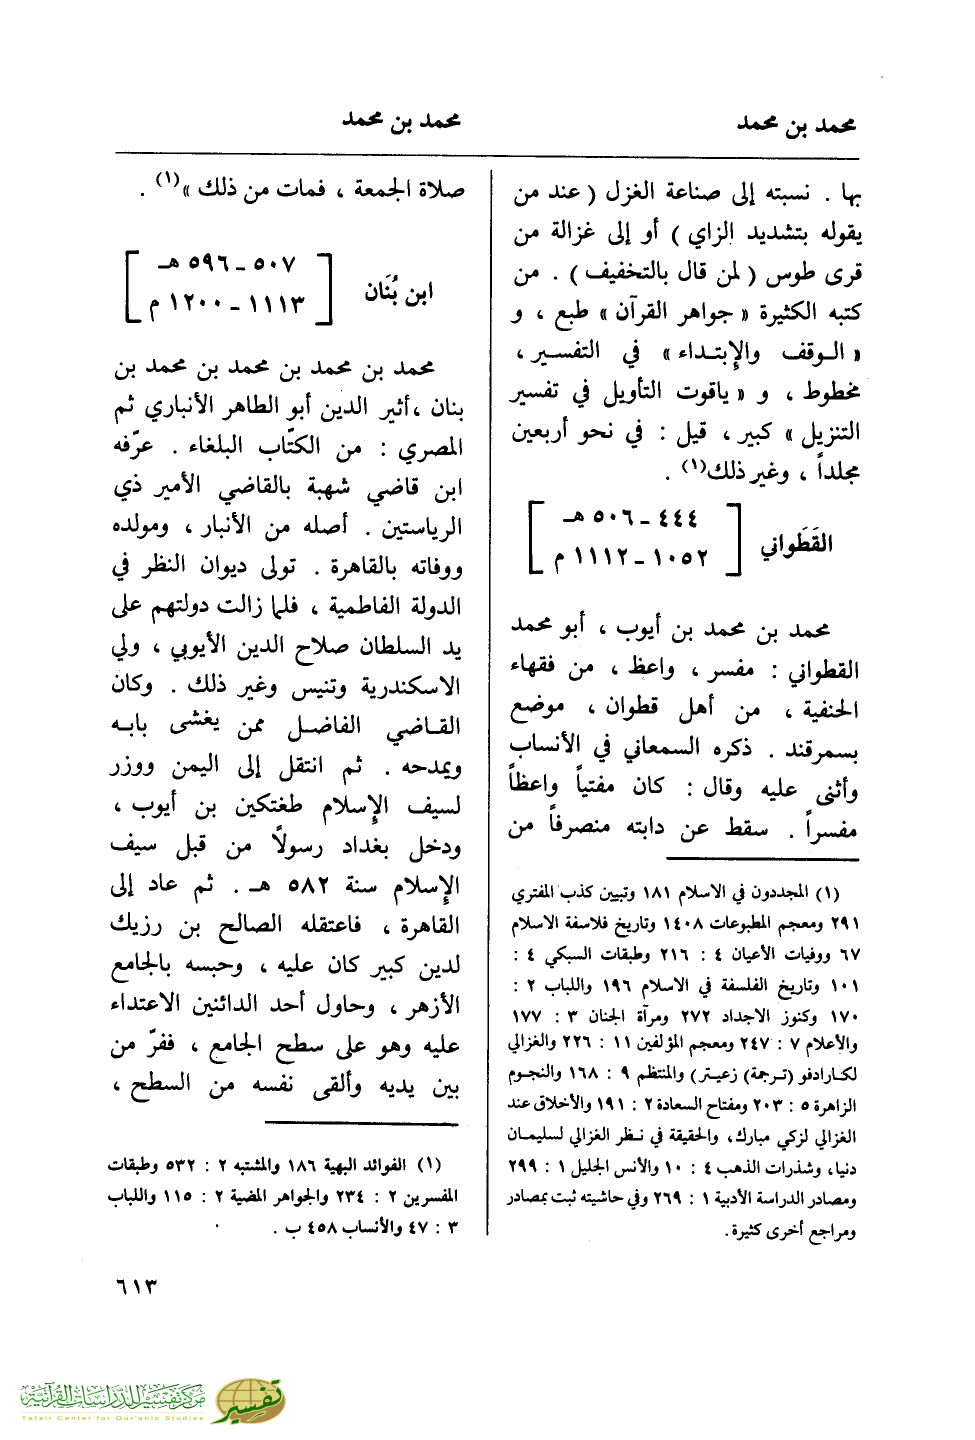 محمد بن محمد
محمد بن محمد
بها . نسبته إلى صناعة الغزل ( عند من
يقوله بتشديد الزاي ) أو إلى غزالة من
قرى طوس ( لمن قال بالتخفيف ) . من
كتبه الكثيرة « جواهر القرآن » طبع ، و
« الـوقف والإبتـداء » في التفسـير ،
مخطوط ، و « ياقوت التأويل في تفسير
التنزيل » كبير ، قيل : في نحو أربعين
مجلداً ، وغير ذلك(١) .
القَطَواني
٤٤٤ ـ ٥٠٦ هـ
١٠٥٢ ـ ١١١٢ م
محمد بن محمد بن أيوب ، أبو محمد
القطواني : مفسر ، واعظ ، من فقهاء
الحنفية ، من أهل قطوان ، موضع
بسمرقند . ذكره السمعاني في الأنساب
وأثنى عليه وقال : كان مفتياً واعظاً
مفسراً . سقط عن دابته منصرفاً من
(١) المجددون في الاسلام ١٨١ وتبيين كذب المفتري
٢٩١ ومعجم المطبوعات ١٤٠٨ وتاريخ فلاسفة الاسلام
٦٧ ووفيات الأعيان ٤ : ٢١٦ وطبقات السبكي ٤ :
١٠١ وتاريخ الفلسفة في الاسلام ١٩٦ واللباب ٢ :
١٧٠ وكنوز الاجداد ٢٧٢ ومرآة الجنان ٣ : ١٧٧
والأعلام ٧ : ٢٤٧ ومعجم المؤلفين ١١ : ٢٢٦ والغزالي
لكـارادفو (تـرجمة) زعيتر) والمنتظم ٩ : ١٦٨ والنجـوم
الزاهرة ٥ : ٢٠٣ ومفتاح السعادة ٢ : ١٩١ والأخلاق عند
الغزالي لزكي مبارك، والحقيقة في نـظر الغزالي لسليمـان
دنيا، وشذرات الذهب ٤ : ١٠ والأنس الجليل ١ : ٢٩٩
ومصادر الدراسة الأدبية ١ : ٢٦٩ وفي حاشيته ثبت بمصادر
ومراجع أخرى كثيرة.
صلاة الجمعة ، فمات من ذلك »(١) .
ابن بُنَان
٥٠٧ ـ ٥٩٦ هـ
١١١٣ ـ ١٢٠٠ م
محمد بن محمد بن محمد بن محمد بن
بنان ،أثير الدين أبو الطاهر الأنباري ثم
المصري : من الكتّاب البلغاء . عرّفه
ابن قاضي شهبة بالقاضي الأمير ذي
الرياستين . أصله من الأنبار ، ومولده
ووفاته بالقاهرة . تولى ديوان النظر في
الدولة الفاطمية ، فلما زالت دولتهم على
يد السلطان صلاح الدين الأيوبي ، ولي
الاسكندرية وتنيس وغير ذلك . وكان
القـاضي الفاضـل ممن يغشى بابـه
ويمدحه . ثم انتقل إلى اليمن ووزر
لسيف الإسلام طغتكين بن أيوب ،
ودخل بغداد رسولاً من قبل سيف
الإسلام سنة ٥٨٢ هـ . ثم عاد إلى
القاهرة ، فاعتقله الصالح بن رزيك
لدين كبير كان عليه ، وحبسه بالجامع
الأزهر ، وحاول أحد الدائنين الاعتداء
عليه وهو على سطح الجامع ، ففرّ من
بين يديه وألقى نفسه من السطح ،
(١) الفوائد البهية ١٨٦ والمشتبه ٢ : ٥٣٢ وطبقات
المفسرين ٢ : ٢٣٤ والجواهر المضية ٢ : ١١٥ واللباب
٣ : ٤٧ والأنساب ٤٥٨ ب .
٦١٣
مركز تفسير للدراسات القرآنية
Tafsir Center for Qur'anic Studies
تفسير